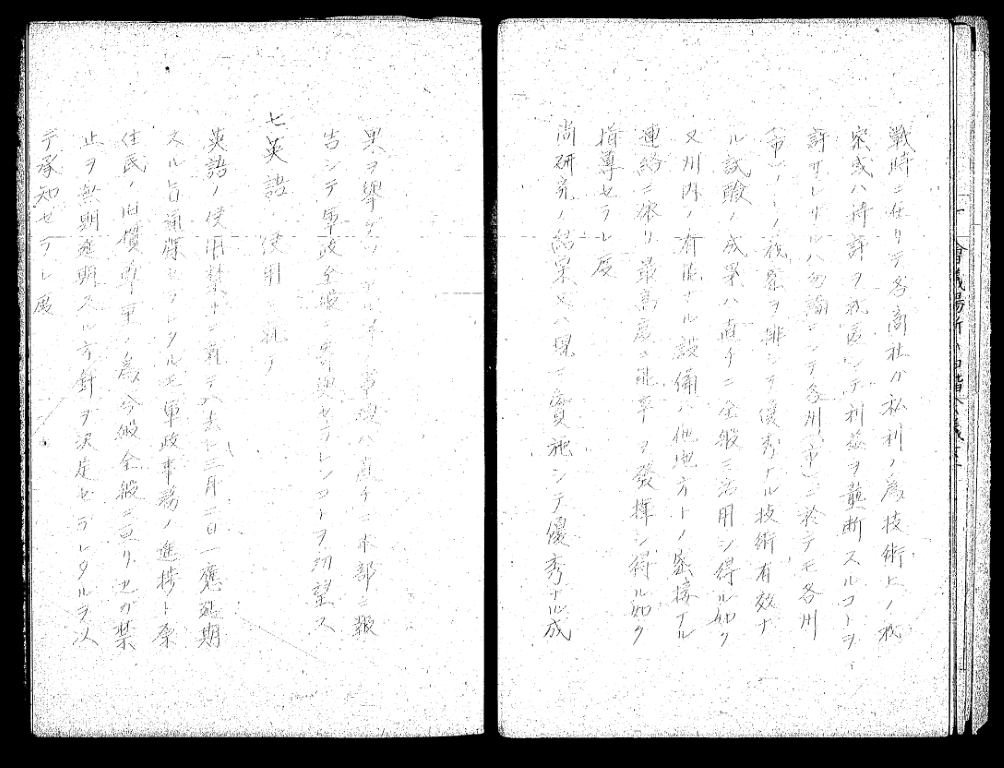 戦時ニ在リテ各商社ガ私利ノ為技術上ノ秘
密或ハ特許ヲ利益ヲ壟断スルコトヲ
許サレザルハ勿論ニシテ各州(市)ニ於テモ各州
(市)ノ秘密ヲ排シテ優秀ナル技術有效ナ
ル試験ノ成果ハ直チニ全般ニ活用シ得ル如ク
又州内ノ有能ナル設備ハ他地方トノ密接ナル
連絡ニ依リ最高度ニ能率ヲ發揮シ得ル如ク
指導セラレ度
尚研究ノ結果又ハ現ニ實施シテ優秀ナル成
果ヲ擧ゲツツアル事項ハ直チニ本部ニ報
告シテ軍政全般ニ セラレンコトヲ切望ス
七英語ノ使用ニ就テ
英語ノ使用禁止ニ就テハ去ル三月二日一應延期
スル旨通牒セラレタルモ軍政事務ノ進捗ト原
住民ノ旧慣尊重ノ為今般全般ニ亘リ之ガ禁
止ヲ無期延期スル方針ヲ決定セラレタルヲ以
テ承知セラレ度
會議場所